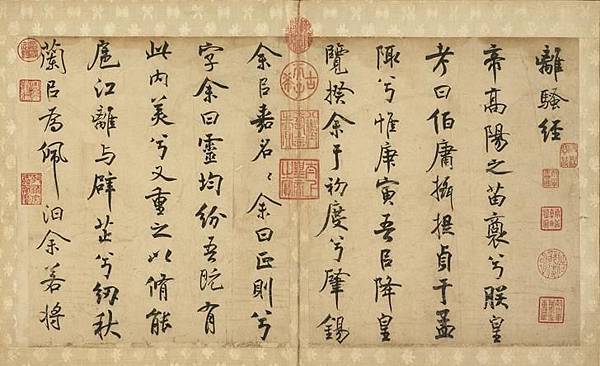 離騷經
帝高陽之苗裔兮朕皇
考曰伯庸攝提貞于孟
陬兮惟庚寅吾以降皇
覽揆余于初度兮肇錫
余以嘉名〻余曰正則兮
字余曰靈均紛吾既有
此内美兮又重之以脩能
扈江離与辟芷兮紉秋
蘭以為佩汩余若將
古希天子